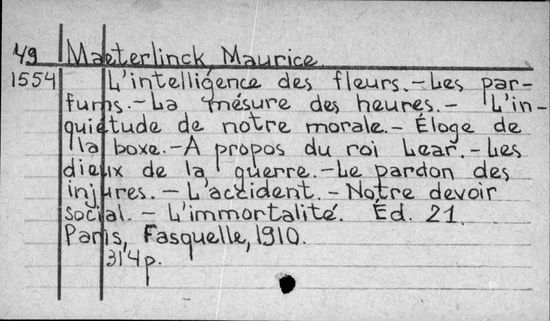 49 Maeterlinck, Maurice.
1554 L'intelligence des fleurs.-Les par-
fums.-La mésure des heures.- L'in-
quiétude de notre morale.- Éloge de
la boxe.-A propos du roi Lear.-Les
dieux de la guerre.-Le pardon des
injures. - L'accident. - Notre devoir
social. - L'immortalité. Éd. 21.
Paris, Fasquelle, 1910.
314 p.